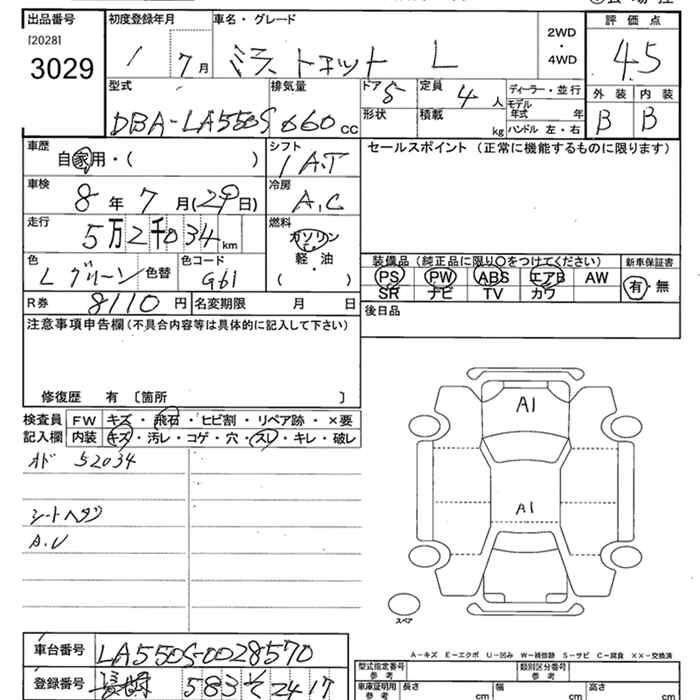 出品番号
[2028]
3029
初度登録年月
1 7月
車名・グレード
ミラ トコット L
2WD
・
4WD
評価点
4.5
外装 内装
B B
型式
DBA-LA550S
排気量
660cc
ドア
5
形状
定員
4人
積載
kg
ディーラー・並行
モデル
年式 年
ハンドル 左・右
車歴
自家用・( )
シフト
1 A.T
車検
8年7月(29日)
冷房
A.C
走行
5万2千034km
燃料
ガソリン
軽・油
( )
色
L グリーン
色替
色コード
G61
R券
8110円
名変期限 月 日
セールスポイント (正常に機能するものに限ります)
装備品 (純正品に限り○をつけてください)
PS PW ABS エアB AW
SR ナビ TV カワ
新車保証書
有・無
後日品
注意事項申告欄(不具合内容等は具体的に記入して下さい)
修復歴 有 〔箇所 〕
検査員
記入欄
FW キズ・飛石・ヒビ割・リペア跡・×要
内装 キズ・汚レ・コゲ・穴・スレ・キレ・破レ
52034
シートヘタリ
A1
A1
スペア
A-キズ E-エクボ U-凹み W-補修跡 S-サビ C-腐食 ××-交換済
車台番号
LA550S-0028570
登録番号
583 そ 2417
型式指定番号
参考
類別区分番号
参考
車庫証明用
参考
長さ cm
幅 cm
高さ cm